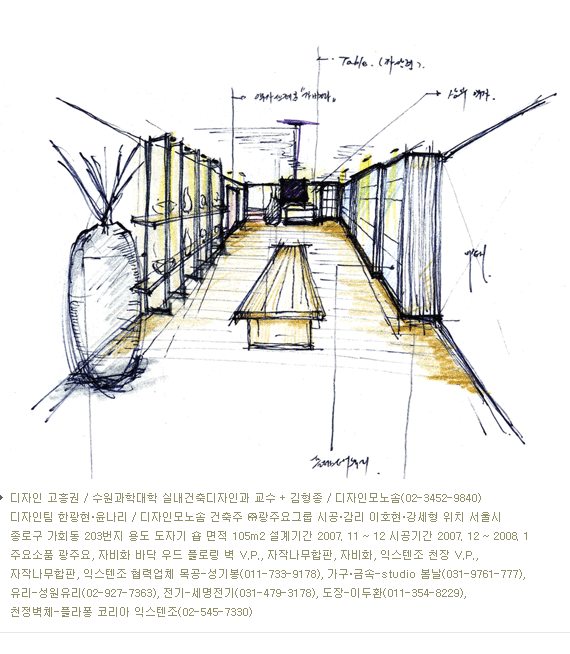 Table. (좌산형).
디자인 고흥권 / 수원과학대학 실내건축디자인과 교수 + 김형종 / 디자인모노솜(02-3452-9840)
디자인팀 한광현·윤나리 / 디자인모노솜 건축주 ㈜광주요그룹 시공·감리 이호현·강세형 위치 서울시
종로구 가회동 203번지 용도 도자기 숍 면적 105m2 설계기간 2007. 11 ~ 12 시공기간 2007. 12 ~ 2008. 1
주요소품 광주요, 자비화 바닥 우드 플로링 벽 V.P., 자작나무합판, 자비화, 익스텐조 천장 V.P.,
자작나무합판, 익스텐조 협력업체 목공-성기봉(011-733-9178), 가구·금속-studio 봄날(031-9761-777),
유리-성원유리(02-927-7363), 전기-세명전기(031-479-3178), 도장-이두환(011-354-8229),
천정벽체-플라퐁 코리아 익스텐조(02-545-7330)